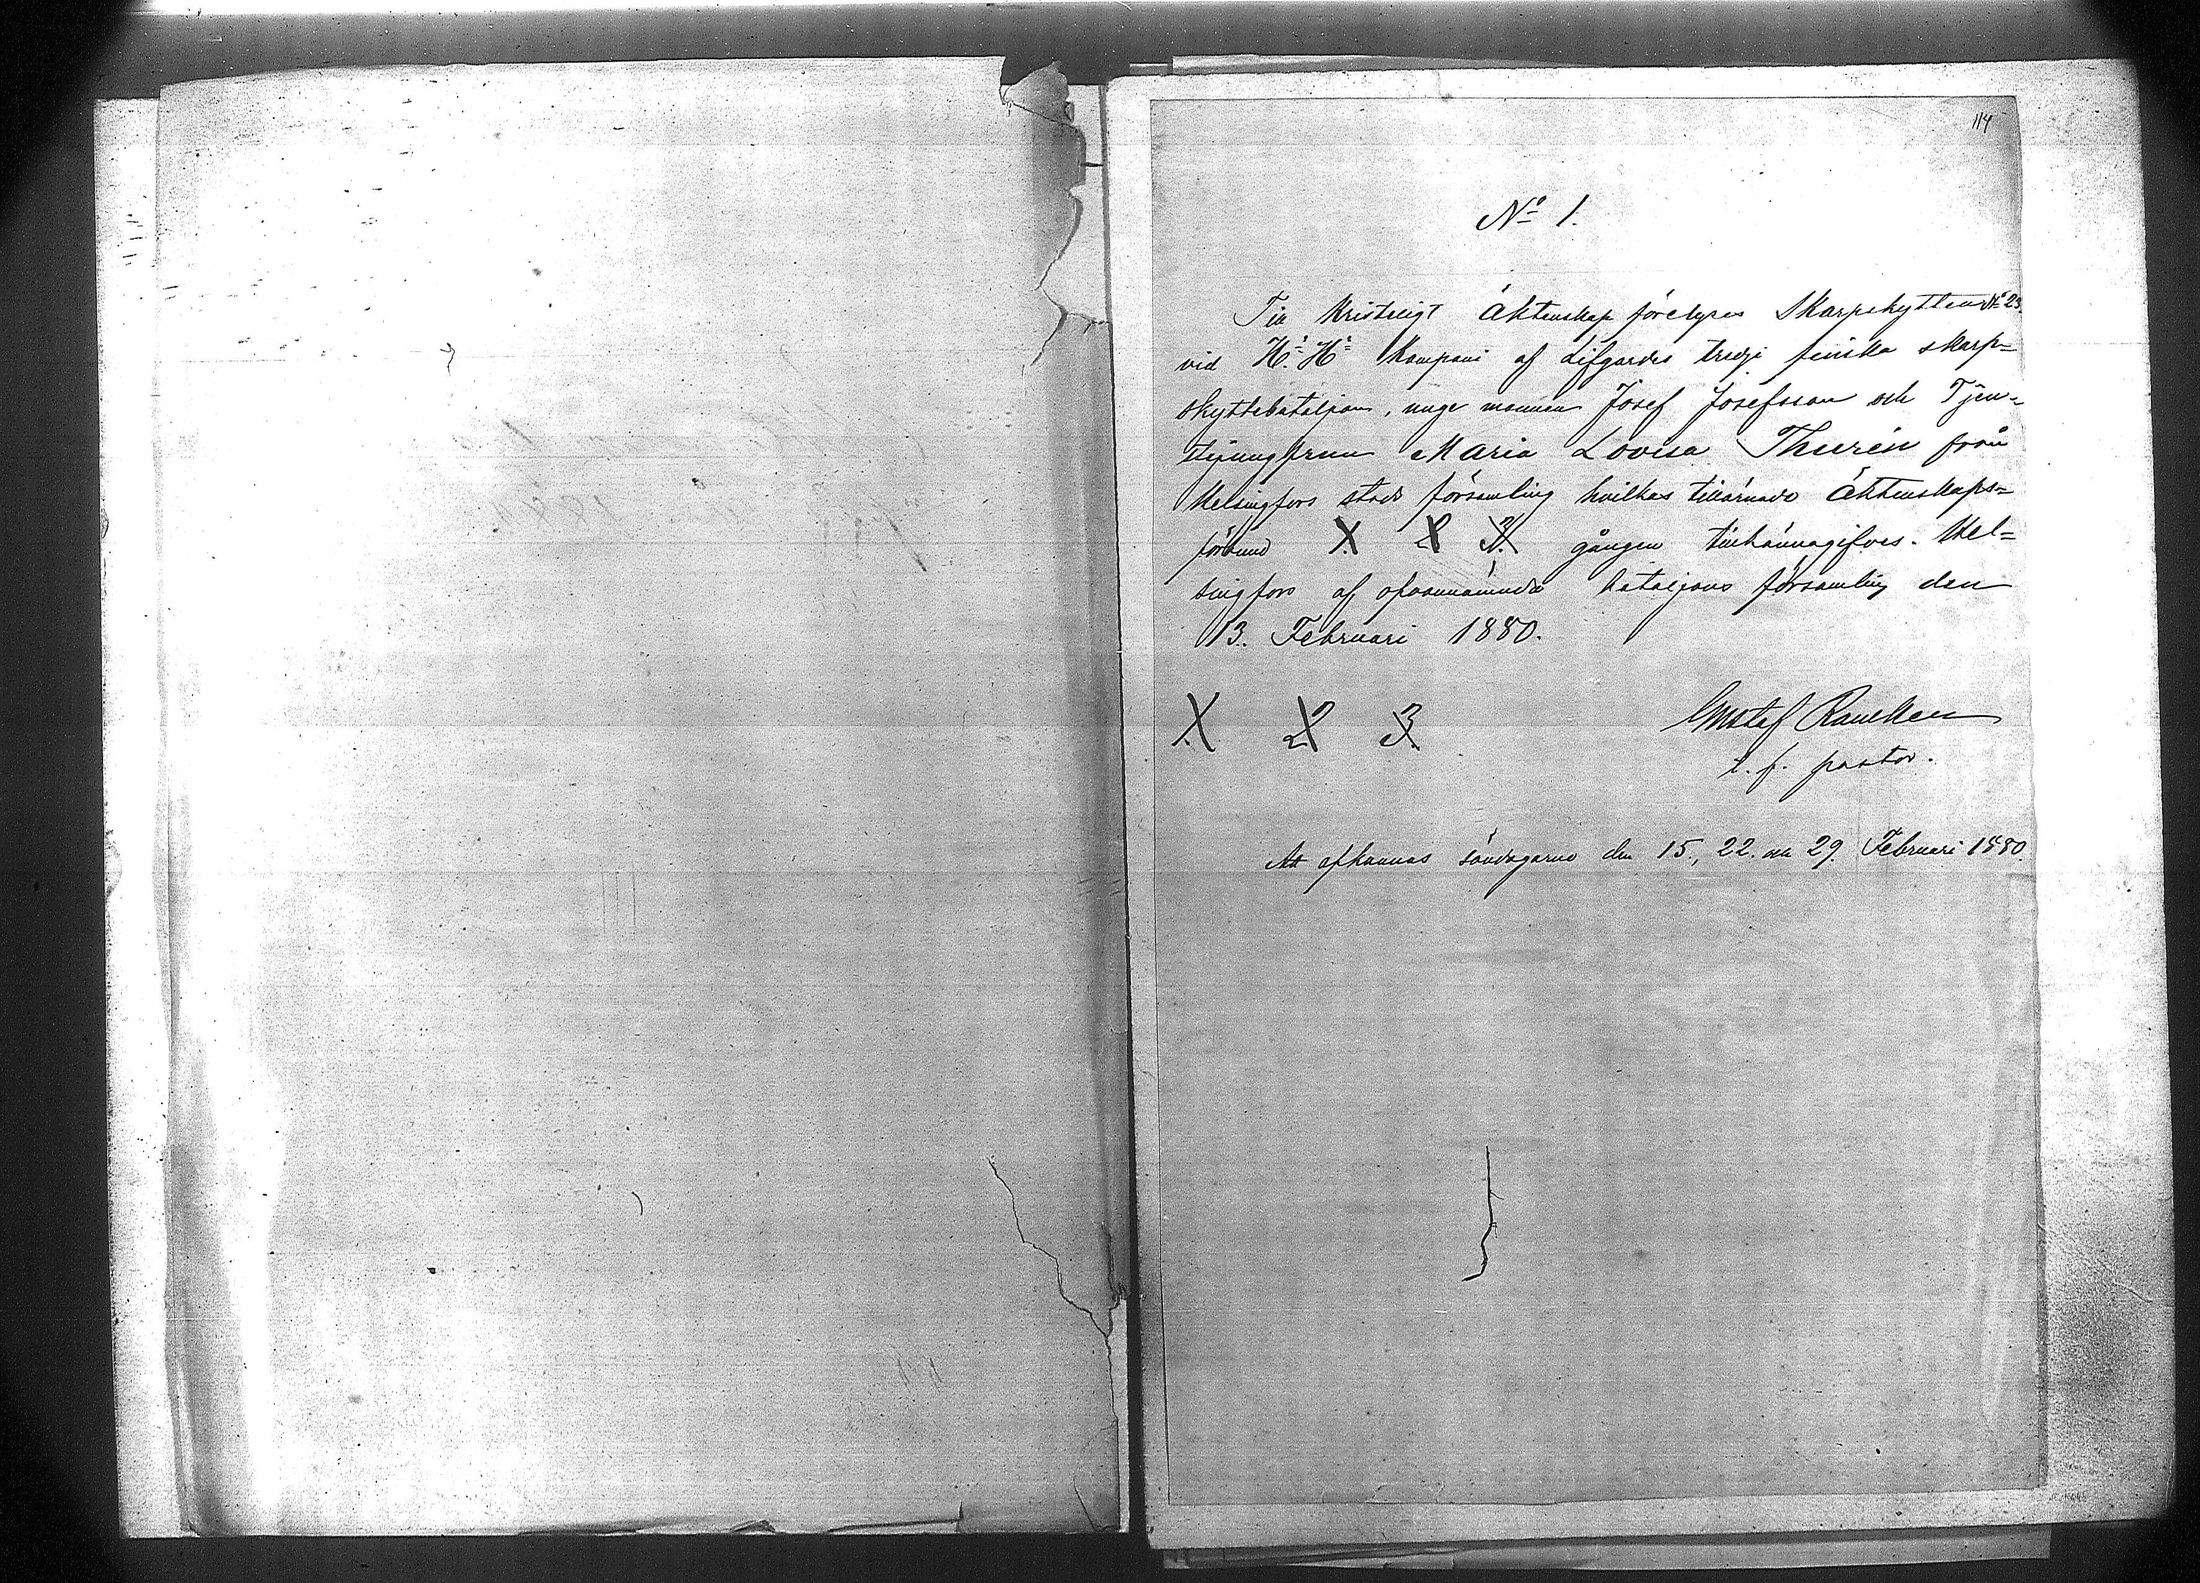 114
Nº 1.
Till Kristeligt Äktenskap förelyses Skarpskytten Nº 23.
vid H. H. Kompani af Lifgardes tredje finska skarp=
skyttebataljon, unge mannen Josef Josefsson och Tjen=
stejungfrun Maria Lovisa Thurén från
Helsingfors stads församling hvilkas tillärnade Äktenskaps=
förbund 1. 2. 3. gången tillkännagifves. Hel=
singfors af ofvannämnda bataljons församling den
13. Februari 1880.
1. 2. 3.
Gustaf
t. f. pastor.
Att afkunnas söndagarne den 15., 22. och 29. Februari 1880.